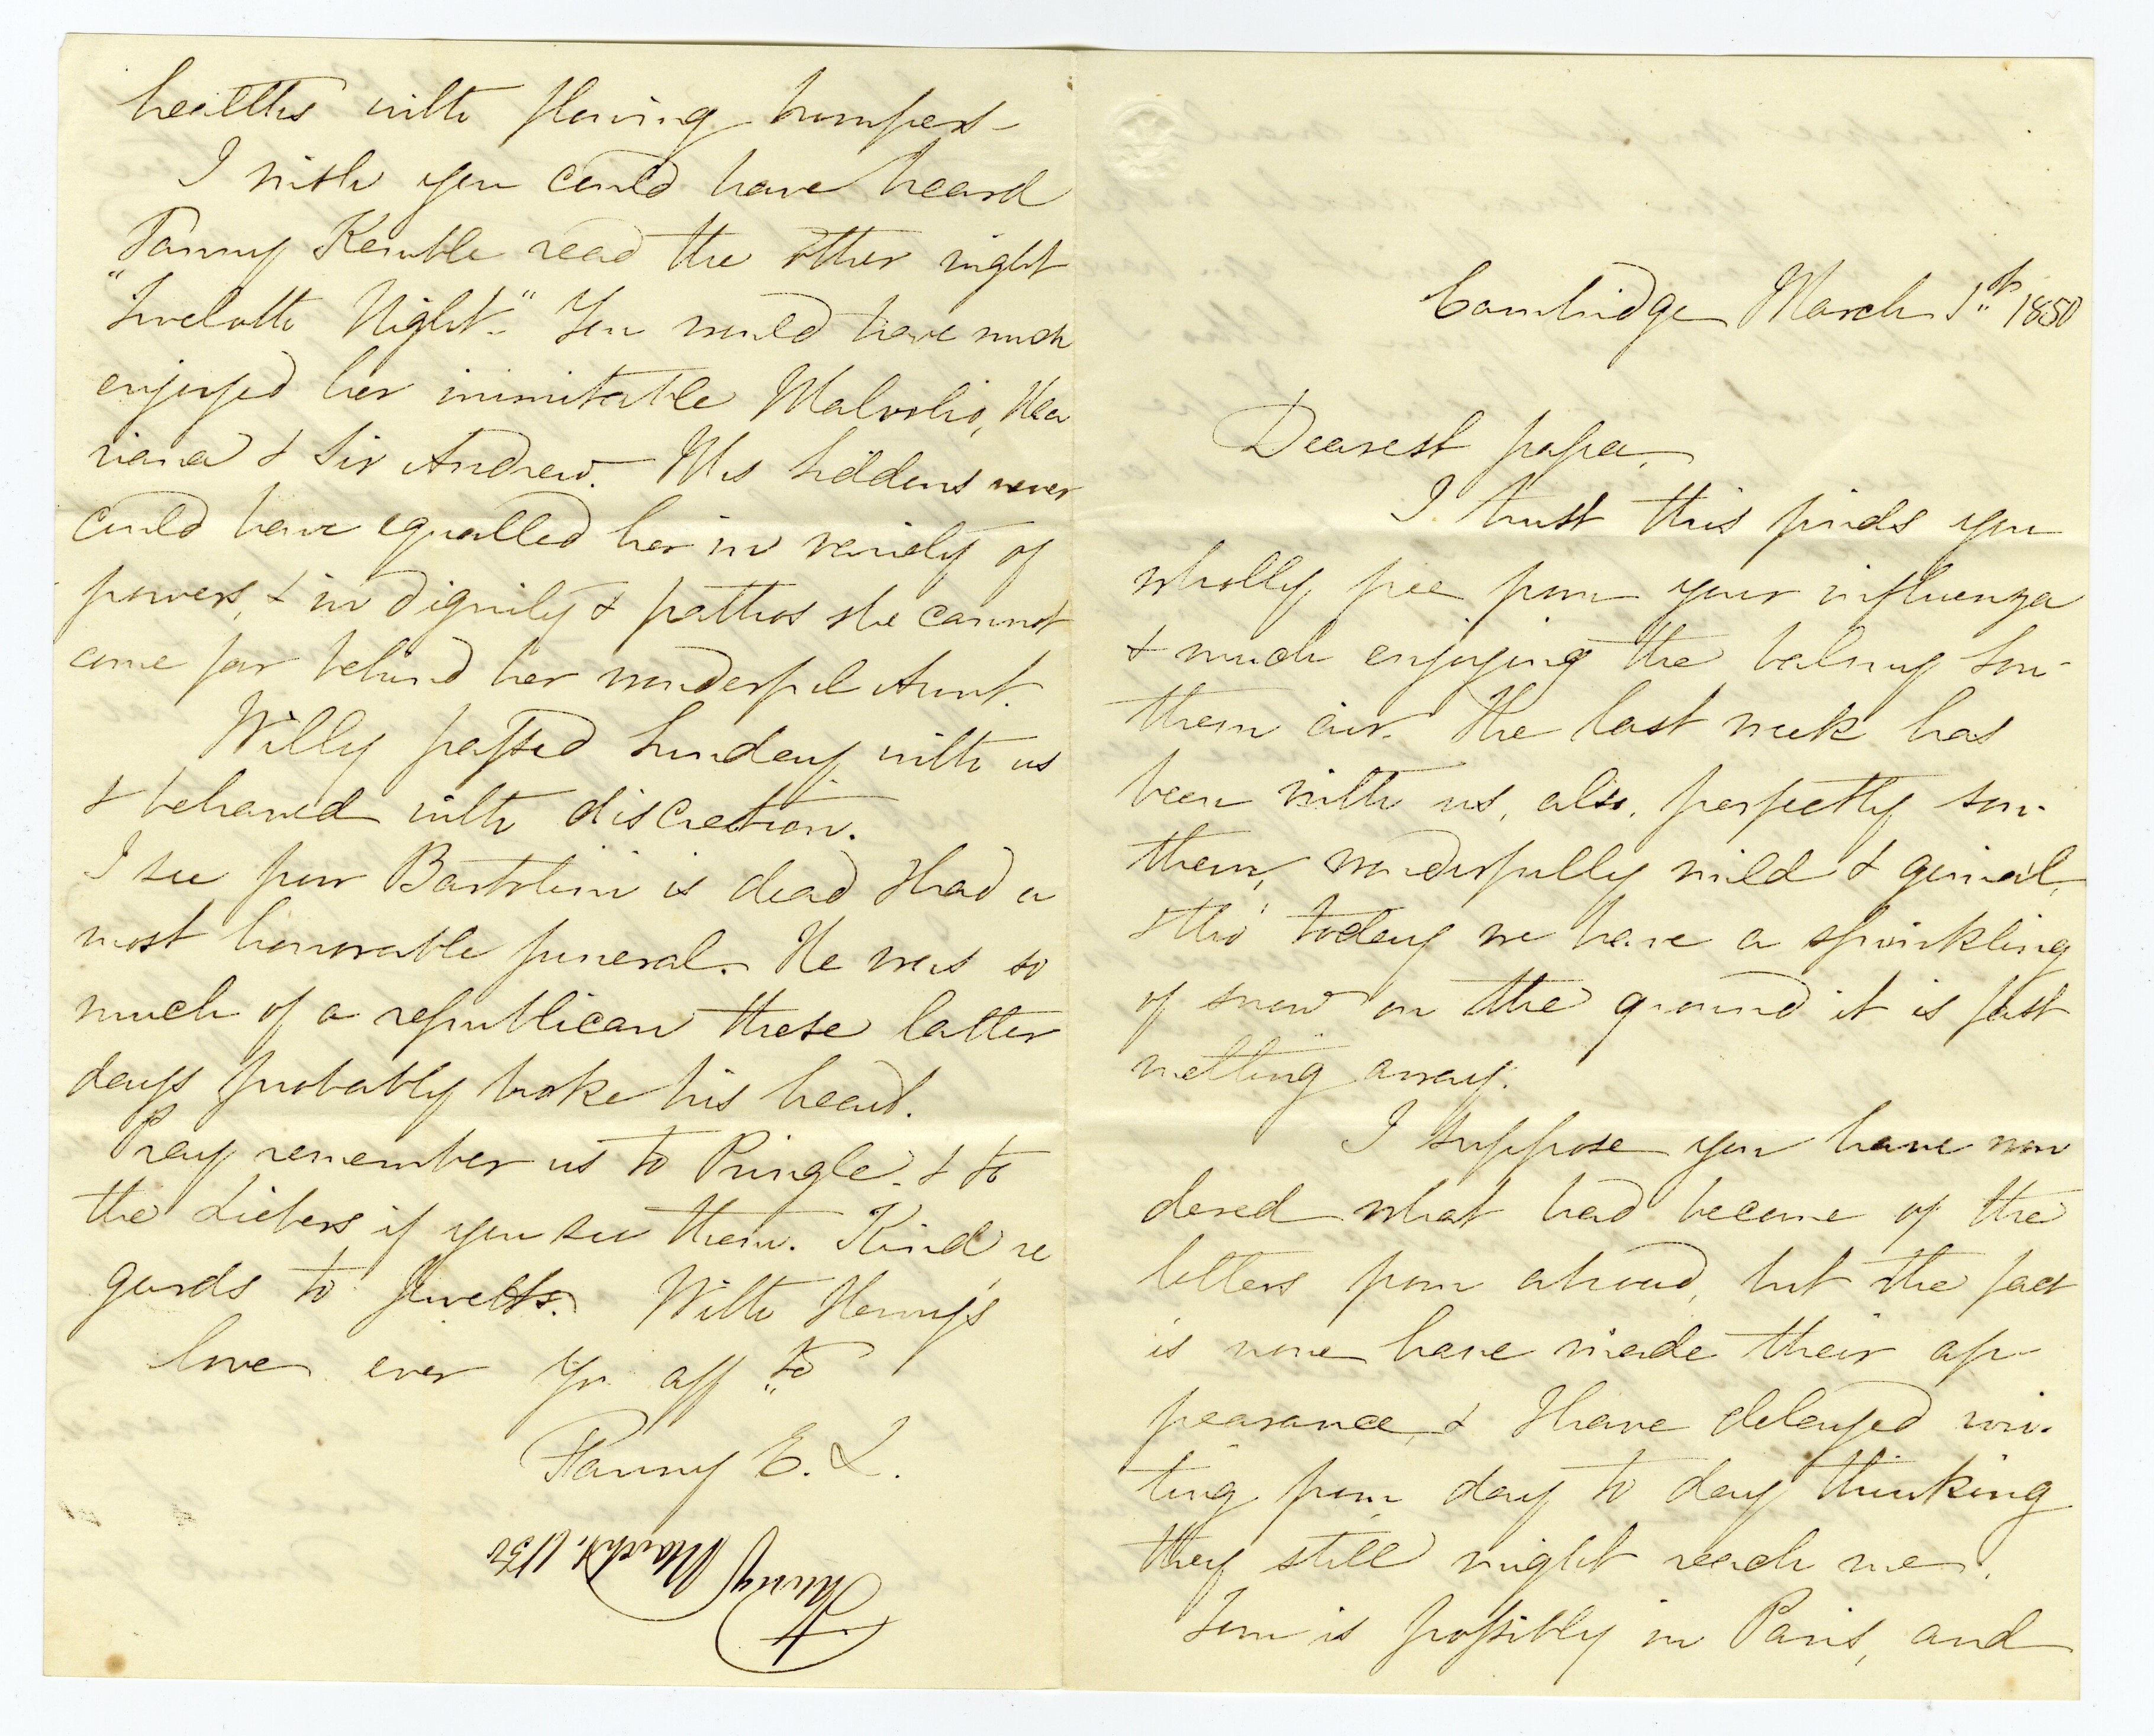 Cambridge March 1st 1850
Dearest papa,
I trust this finds you
wholly free from your influenza
& much enjoying the balmy Sou-
thern air. The last week has
been with us, also, perfectly sou-
thern, wonderfully mild & genial,
& tho' today we have a sprinkling
of snow on the ground it is fast
melting away.
I suppose you have won
dered what had become of the
letters from abroad, but the fact
is none have made their ap-
pearance, & I have delayed wri-
ting from day to day thinking
they still might reach me.
Tom is possibly in Paris, and
healths with flowing bumpers –
I wish you could have heard
Fanny Kemble read the other night
"Twelvth Night." You would have much
enjoyed her inimitable Malvolio, Ma
riana & Sir Andrew. Mrs Siddons never
could have equalled her in variety of
powers, & in dignity & pathos she cannot
come far behind her wonderful Aunt.
Willy passed Sunday with us
& behaved with discretion.
I see poor Bartolini is dead & had a
most honorable funeral. He was so
much of a republican these latter
days probably broke his heart.
Pray remember us to Pringle. & to
the Liebers if you see them. Kind re
gards to Jewetts. With Henry's
love ever yr aff te
Fanny E. L.
Fanny March 1, 1850